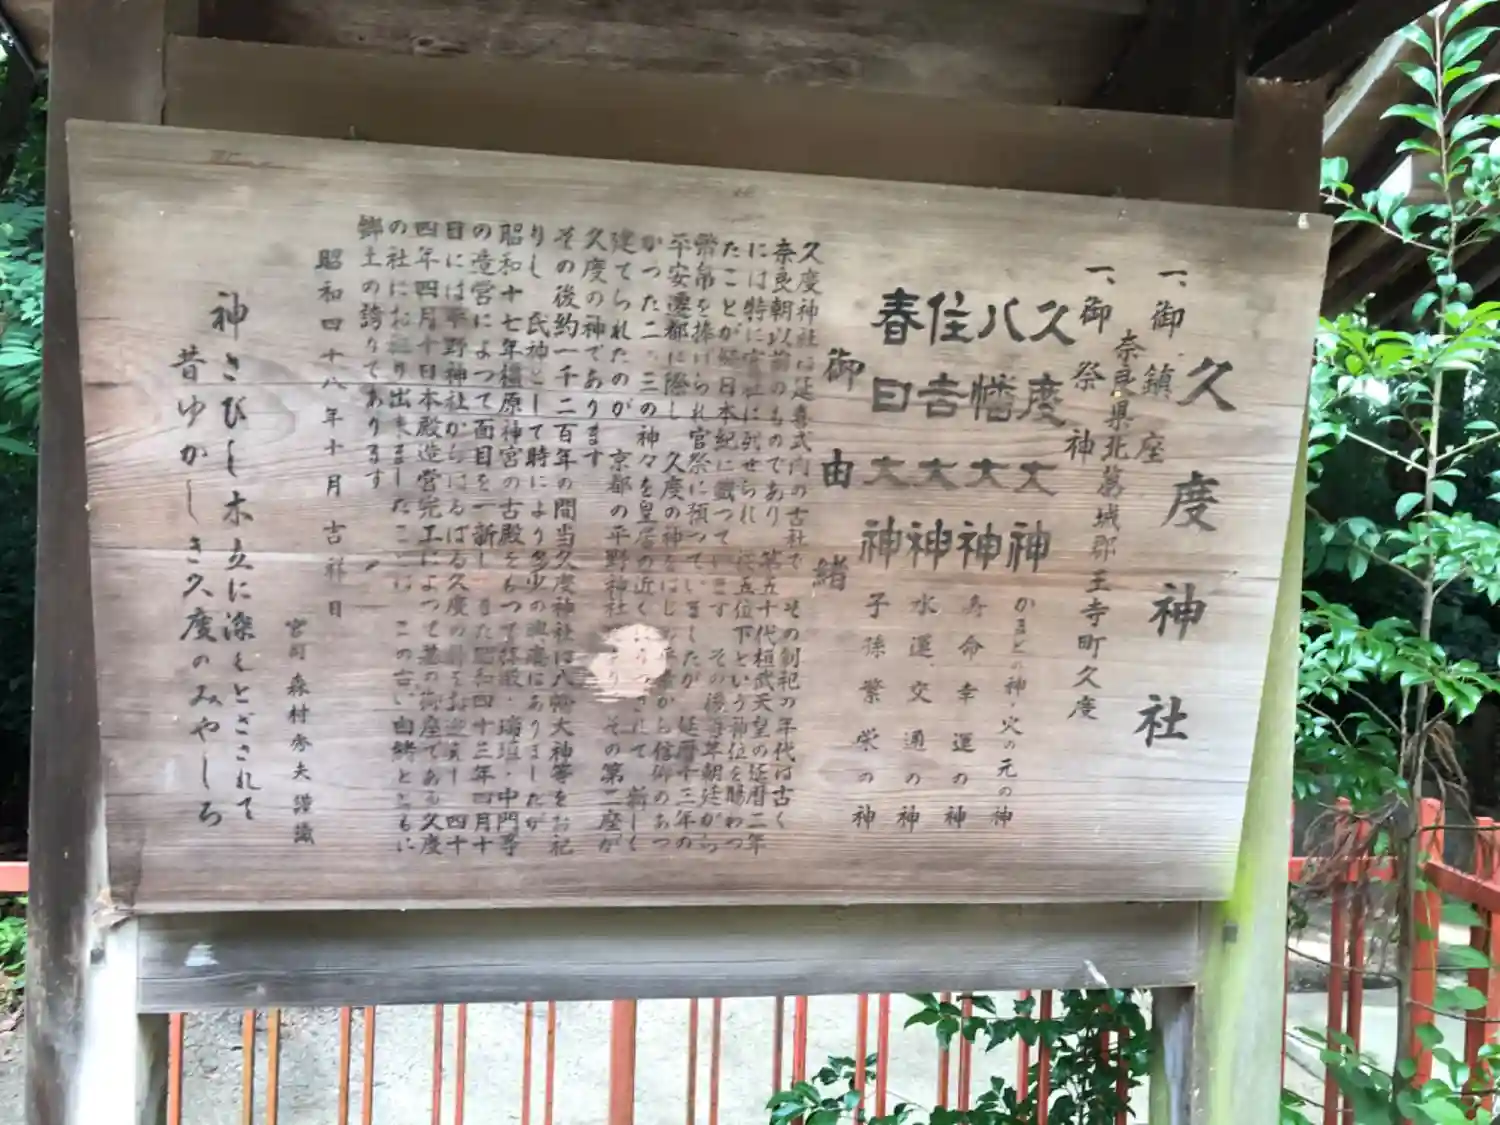 久度神社
一、御鎮座
奈良県北葛城郡王寺町久度
一、御祭神
久度大神 かまどの神・火の元の神
八幡大神 寿命幸運の神
住吉大神 水運交通の神
春日大神 子孫繁栄の神
御由緒
久度神社は延喜式内の古社で その創祀の年代は古く
奈良朝以前のものであり 第五十代桓武天皇の延暦二年
には特に官社に列せられ 従五位下という神位を賜わつ
たことが続日本紀に載つています その後毎年朝廷から
幣帛を捧げられ官祭に預つていましたが 延暦十三年の
平安遷都に際し 久度の神をはじめ から信仰のあつ
かつた二、三の神々を皇居の近く されて 新しく
建てられたのが 京都の平野神社 その第二座が
久度の神であります
その後約一千二百年の間当久度神社は八幡大神等をお祀
りし 氏神として時により多少の興廃にありましたが
昭和十七年橿原神宮の古殿をもつて拝殿・瑞垣・中門等
の造営によつて面目を一新し また昭和四十三年四月十
日には平野神社からはるばる久度の神をお迎えし 四十
四年四月十日本殿造営完工によつて 御座である久度
の社にお 出来ましたことは この古い由緒とともに
郷土の誇りであります
昭和四十八年十月吉祥日
宮司 森村秀夫謹識
神さびし木立に深くとざされて
昔ゆかしき久度のみやしろ